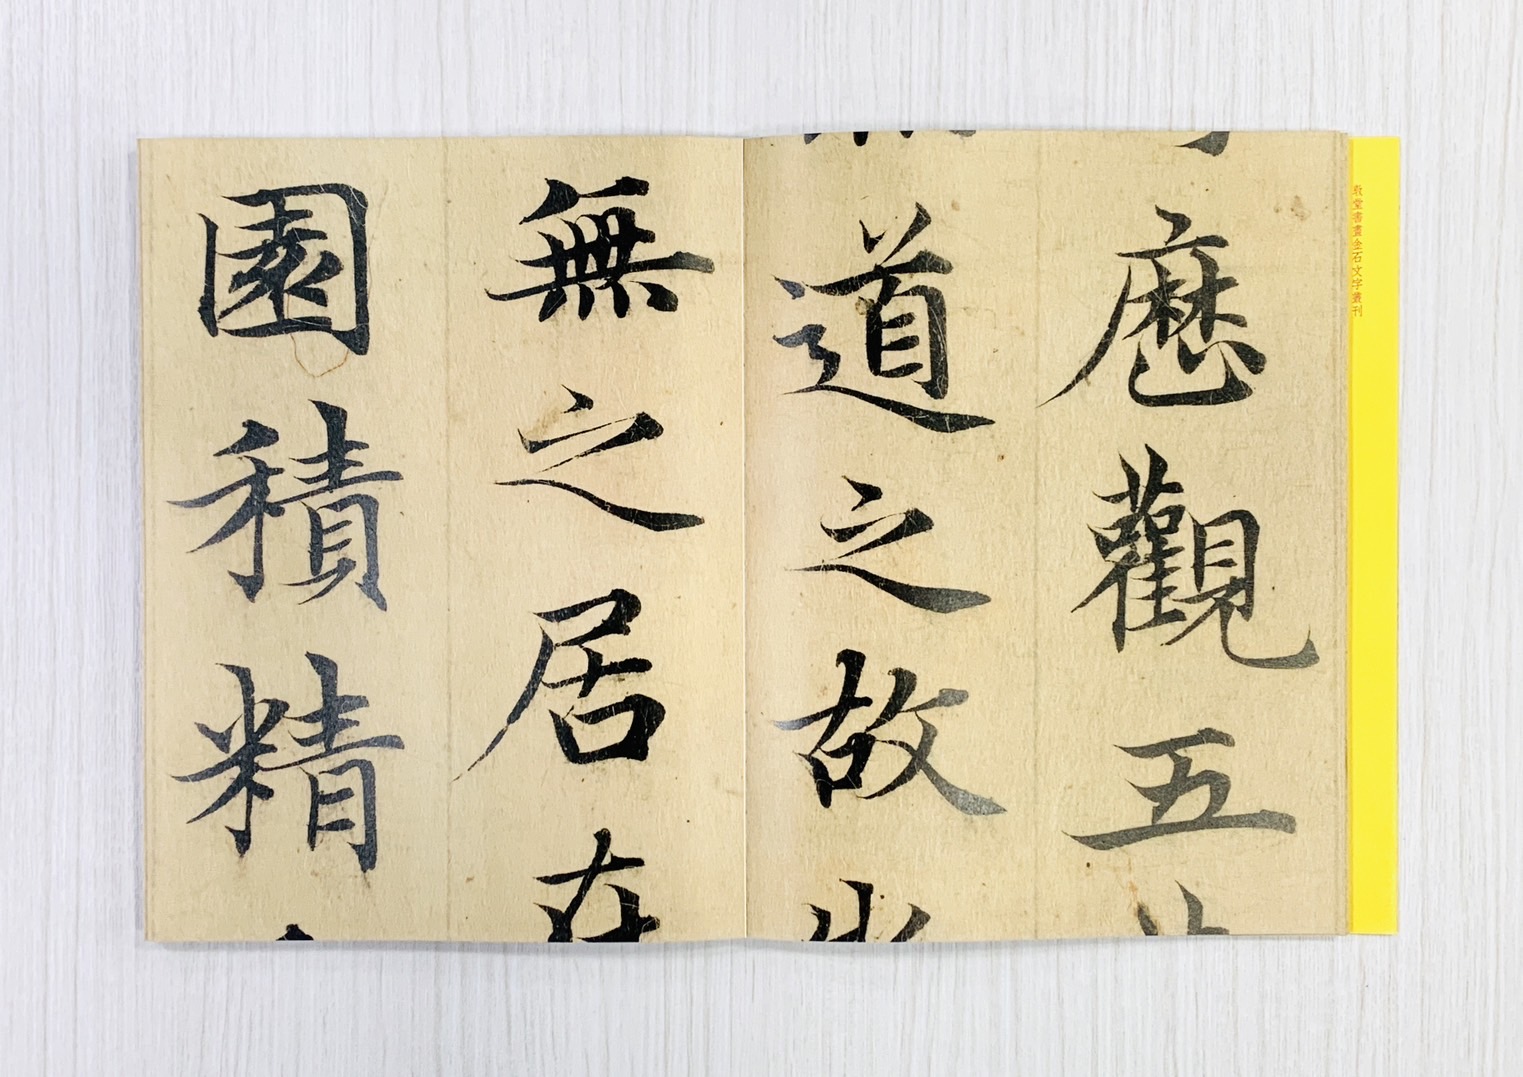 歷觀五
道之故
無之居在
園積精
堂書畫金石文字叢刊